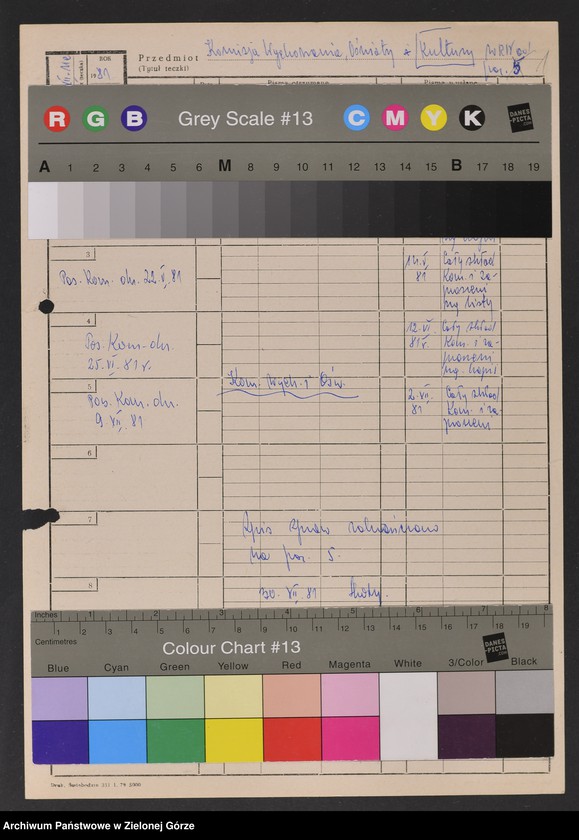 ROK
1981
Przedmiot
(Tytuł teczki)
Komisja Wychowania, Oświaty i Kultury WRN od
poz. 5
R G B Grey Scale #13 C M Y K
DANES
-PICTA
.COM
A 1 2 3 4 5 6 M 8 9 10 11 12 13 14 15 B 17 18 19
3
Pos. Kom. dn. 22.V.81
14.V.
81
Cały skład
Kom. i za-
proszeni
wg listy
4
Pos. Kom. dn.
25.VI.81 r.
12.VI.
81 r.
Cały skład
Kom. i za-
proszeni
5
Kom. Wych. i Ośw.
Pos. Kom. dn.
9 VII 81
2.VII.
81
Cały skład
Kom. i za-
proszeni
6
7
Spis spraw zakończono
na poz. 5.
8
30. VII 81
Inches 1 2 3 4 5 6 7 8
Centimetres 1 2 3 4 5 6 7 8 9 10 11 12 13 14 15 16 17 18 19
Colour Chart #13
DANES
-PICTA
.COM
Blue Cyan Green Yellow Red Magenta White 3/Color Black
Archiwum Państwowe w Zielonej Górze